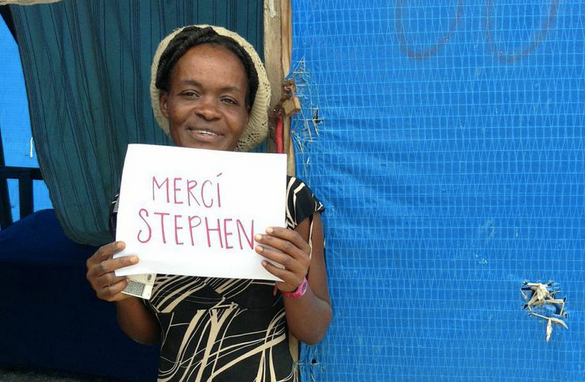 MERCÍ
STEPHEN